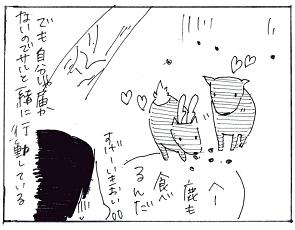 へー
鹿も
食べ
るんだ
すげいきおい。。
でも自分じゃ届か
ないのでサルと一緒に行動している